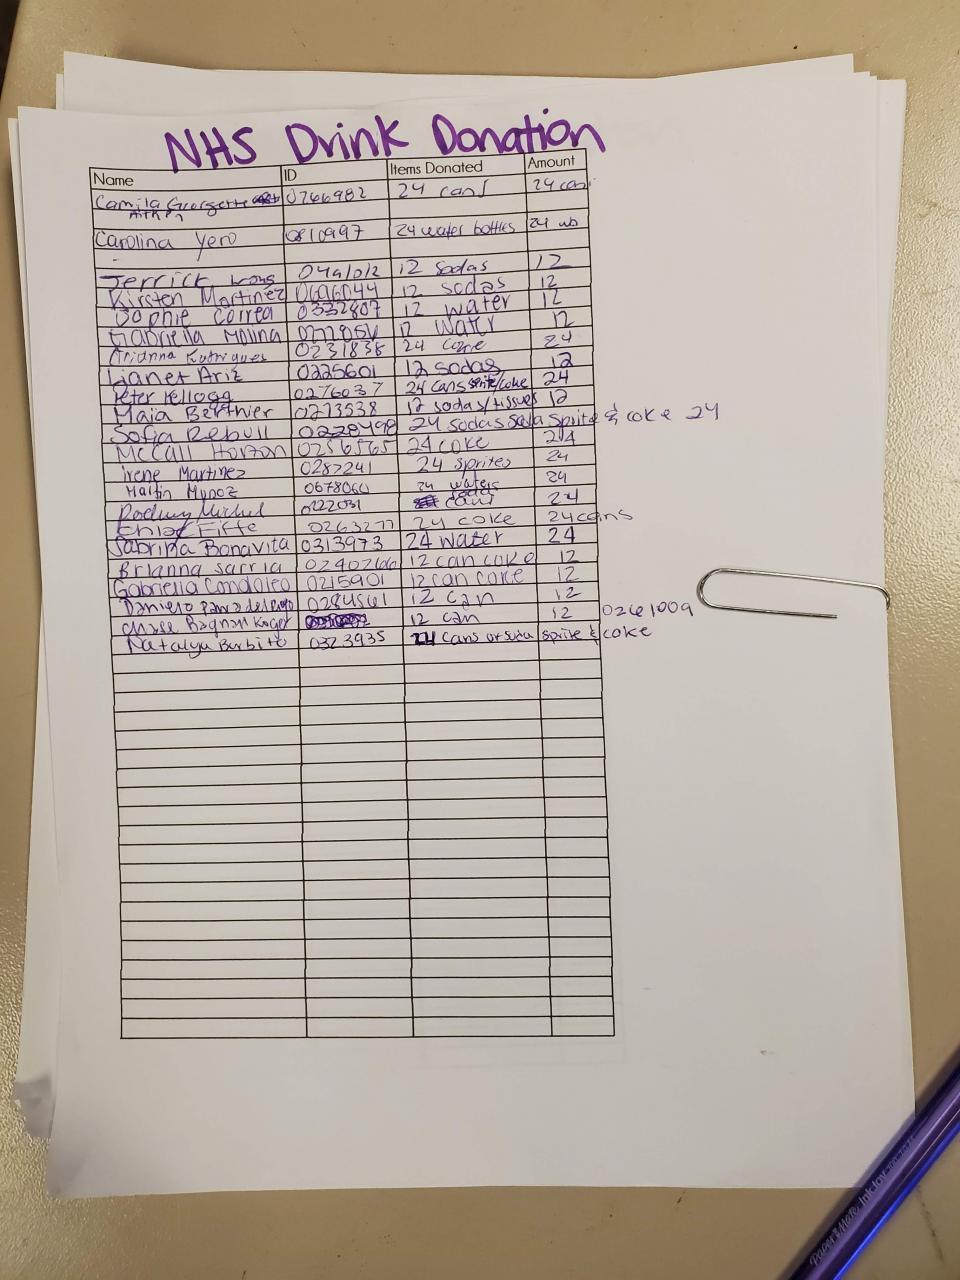 NHS Drink Donation
Name ID Items Donated Amount
Camila Georgette 0766982 24 cans 24 cans
Carolina Yero 0810997 24 water bottles 24 wb
Jerrick 12 sodas 12
Kirsten Martinez 0696044 12 sodas 12
Sophie Correa 0332807 12 water 12
Gabriella Molina 12 Water 12
Arianna Rodriguez 0231838 24 coke 24
Lianet Ariz 0225601 12 sodas 12
Peter Kellogg 0276037 24 cans sprite/coke 24
Maia Berthier 0273538 12 sodas/tissues 12
Sofia Rebull 0228498 24 sodas soda Sprite & coke 24
McCall Horton 0256565 24 coke 24
Irene Martinez 0287241 24 sprites 24
Martin Munoz 0678060 24 waters 24
Rodney Michel 0222031 24
Chloe Fiffe 0263277 24 coke 24 cans
Sabrina Bonavita 0313973 24 Water 24
Brianna Sarria 12 can coke 12
Gabriella Condoleo 0215901 12 can coke 12
0284561 12 can 12
Chase Bagnall Koger 12 can 12 0261009
Natalya Berbito 0323935 24 cans of soda sprite & coke
Paper Mate InkJoy